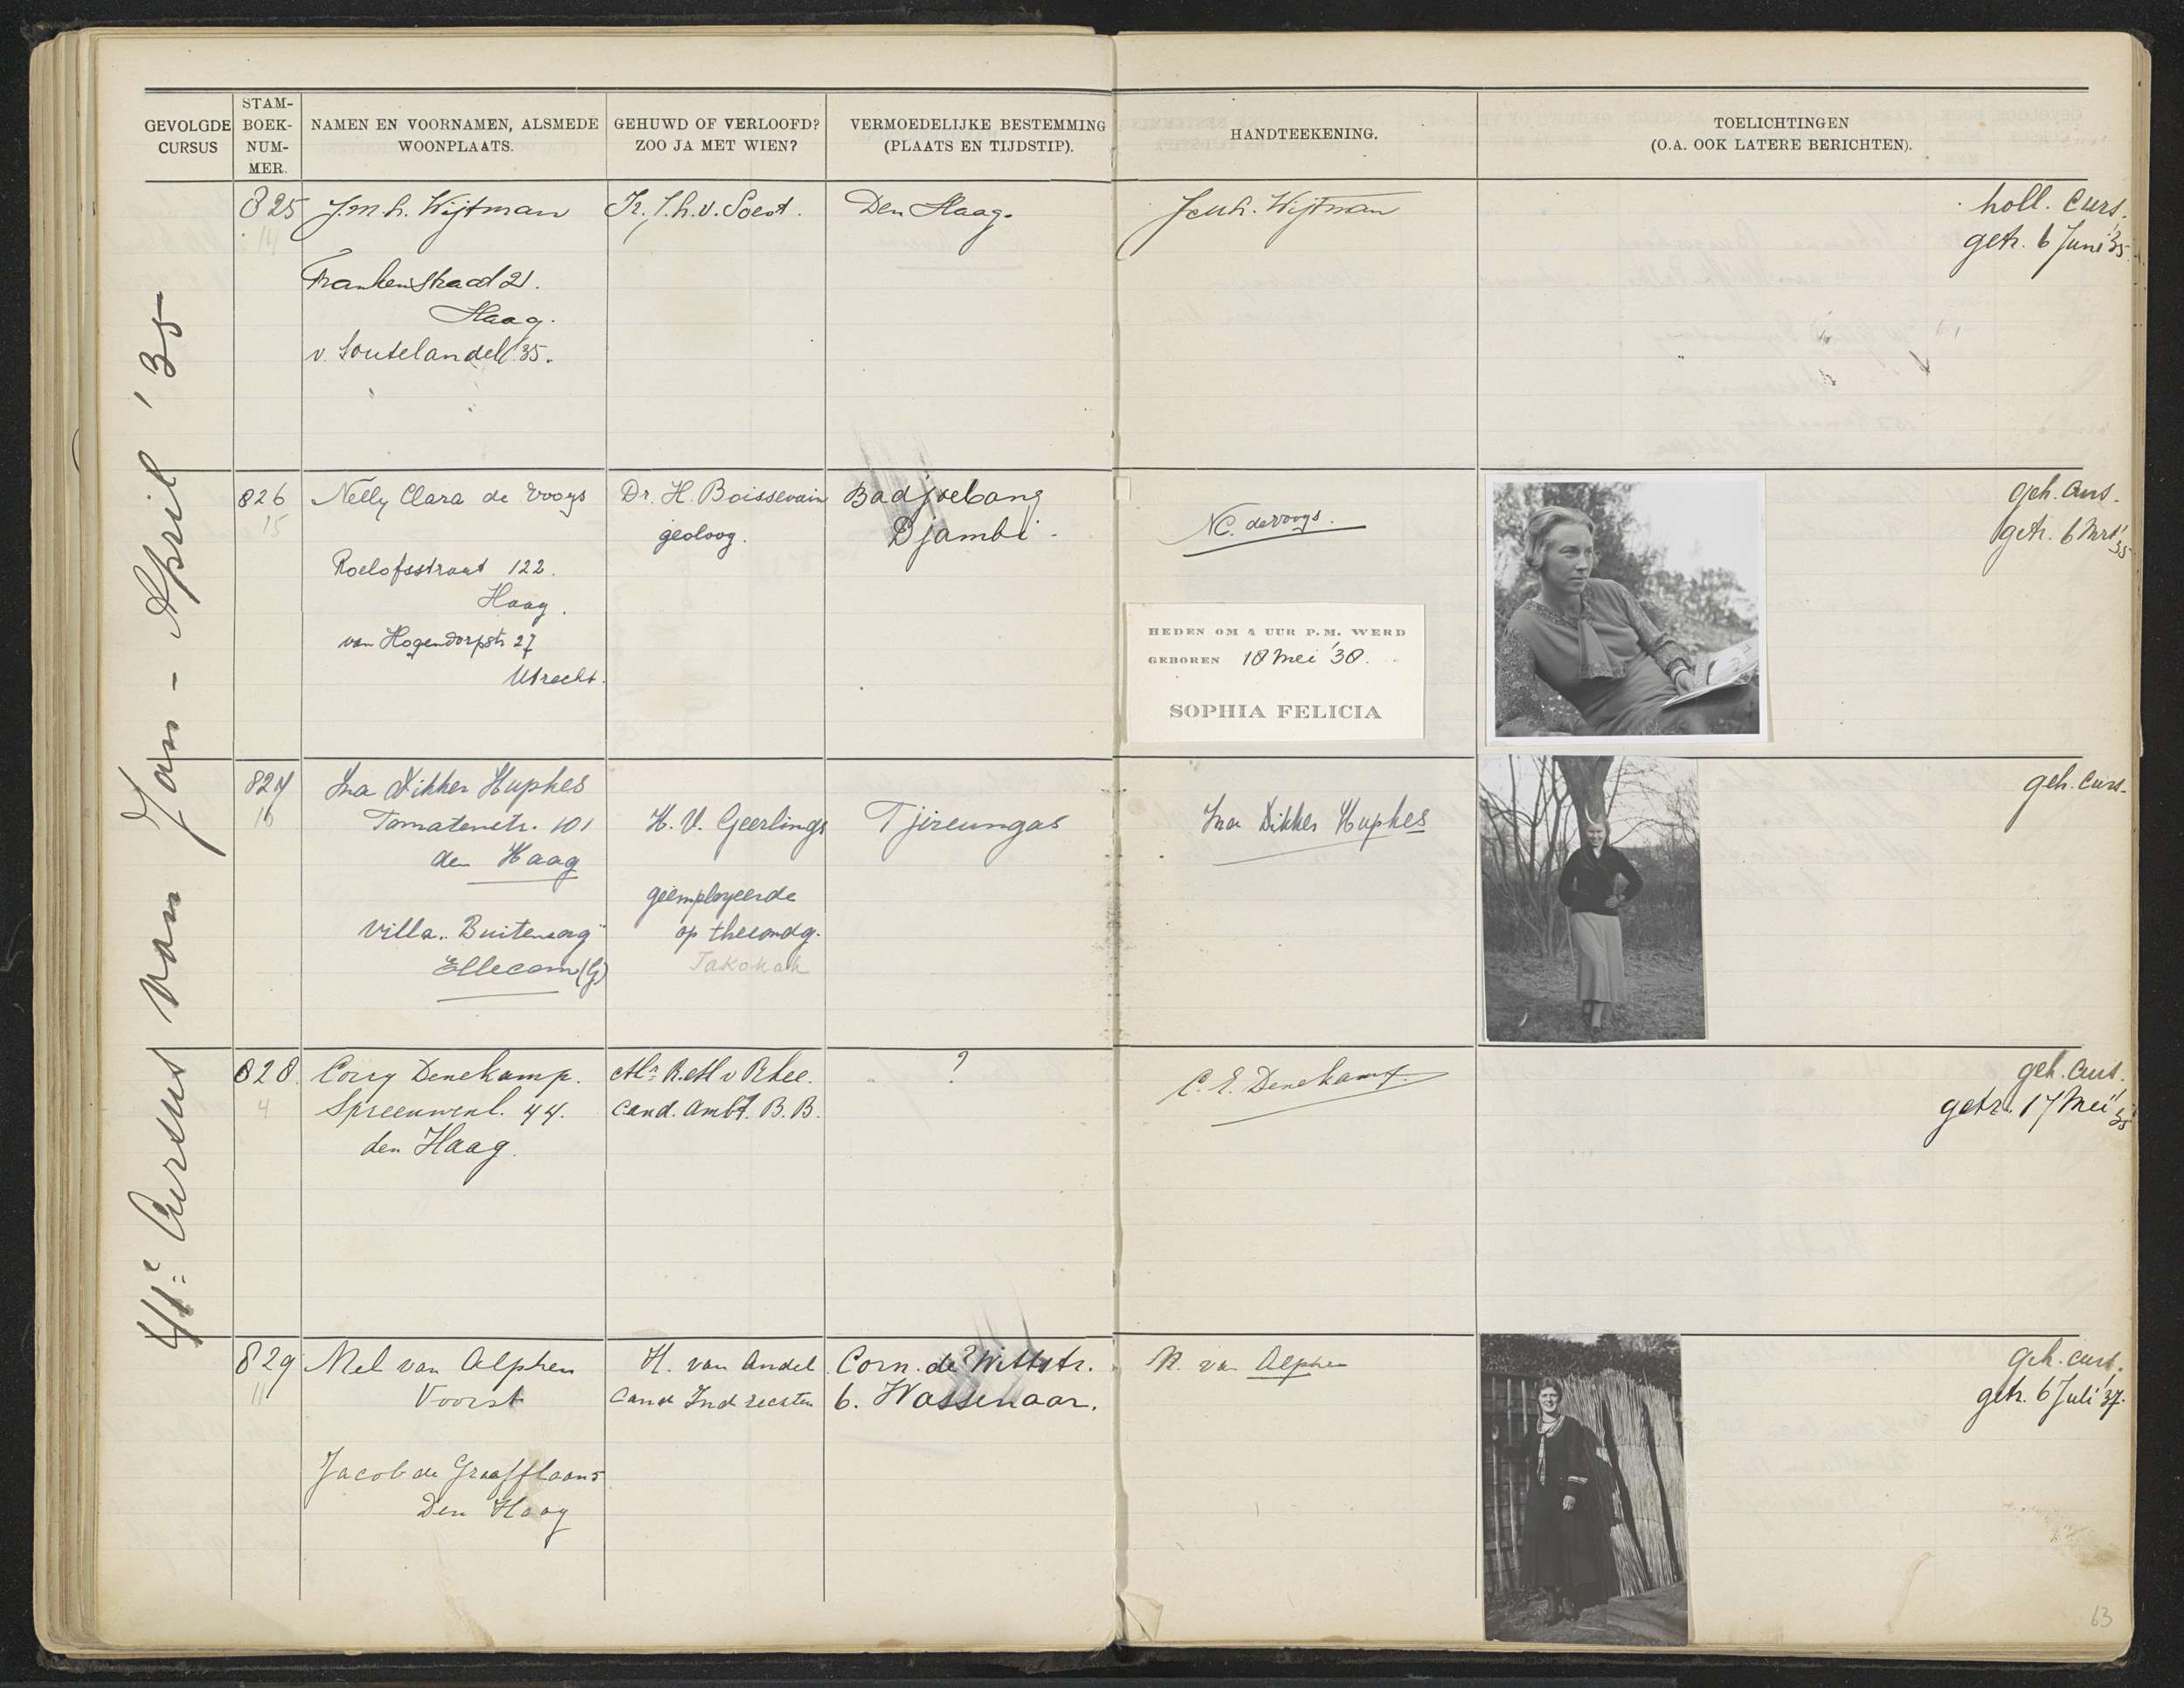 GEVOLGDE CURSUS
STAM-BOEK-NUM-MER.
NAMEN EN VOORNAMEN, ALSMEDE WOONPLAATS.
GEHUWD OF VERLOOFD? ZOO JA MET WIEN?
VERMOEDELIJKE BESTEMMING (PLAATS EN TIJDSTIP).
HANDTEEKENING.
TOELICHTINGEN
(O.A. OOK LATERE BERICHTEN).
41e Cursus van Jan - April '35
825
14
J.M.h. Wijtman
Frankenstraat 21.
Haag.
v. Soutelandel. 35.
Ir. J.h.v. Soest.
Den Haag.
Wijtman
holl. Curs.
getr. 6 Juni '35
826
15
Nelly Clara de Vooys
Roelofsstraat 122.
Haag.
van Hogendorpstr 27
Utrecht.
Dr. H. Boissevain
geoloog.
Badjoebang
Djambi.
N.C. de Vooys.
HEDEN OM 4 UUR P.M. WERD
GEBOREN 18 Mei '38.
SOPHIA FELICIA
geh. Curs.
getr. 6 Mrt '35
827
16
Ina Dikker Hupkes
Tomatenstr. 101
den Haag
Villa "Buitenzorg"
Ellecom (G)
H. V. Geerlings
geëmployeerde
op theeondg.
Takokak
Tjireungas
Ina Dikker Hupkes
geh. Curs.
828.
4
Corry Denekamp.
Spreeuwenl. 44.
den Haag.
Mr. R. v Rhee.
Cand. Ambt. B.B.
?
C. E. Denekamp.
geh. Curs.
getr. 17 Mei '35
829
11
Mel van Alphen
Voorst
Jacob de Graefflaan 5
Den Haag
H. van Andel
Cand Ind rechten
?
Corn. de Wittstr.
6. Wassenaar.
M. van Alphen
geh. Curs.
getr. 6 Juli '37.
63